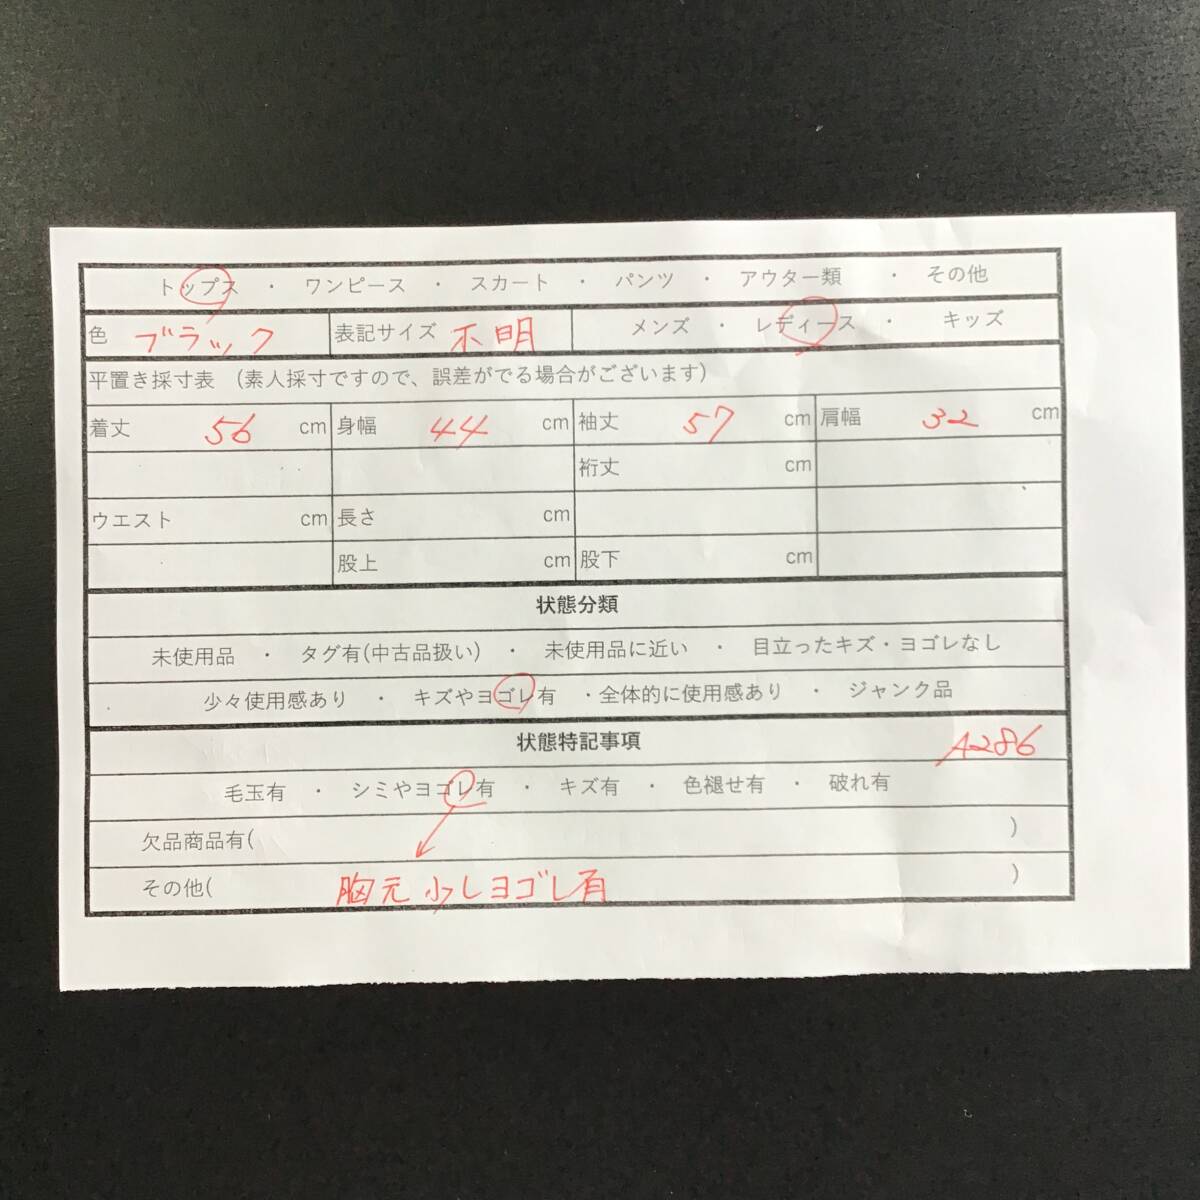 トップス ・ ワンピース ・ スカート ・ パンツ ・ アウター類 ・ その他
色 ブラック 表記サイズ 不明 メンズ ・ レディース ・ キッズ
平置き採寸表 (素人採寸ですので、誤差がでる場合がございます)
着丈 56 cm 身幅 44 cm 袖丈 57 cm 肩幅 32 cm
裄丈 cm
ウエスト cm 長さ cm
股上 cm 股下 cm
状態分類
未使用品 ・ タグ有(中古品扱い) ・ 未使用品に近い ・ 目立ったキズ・ヨゴレなし
少々使用感あり ・ キズやヨゴレ有 ・全体的に使用感あり ・ ジャンク品
状態特記事項 A286
毛玉有 ・ シミやヨゴレ有 ・ キズ有 ・ 色褪せ有 ・ 破れ有
欠品商品有( )
その他( 胸元 少しヨゴレ有 )